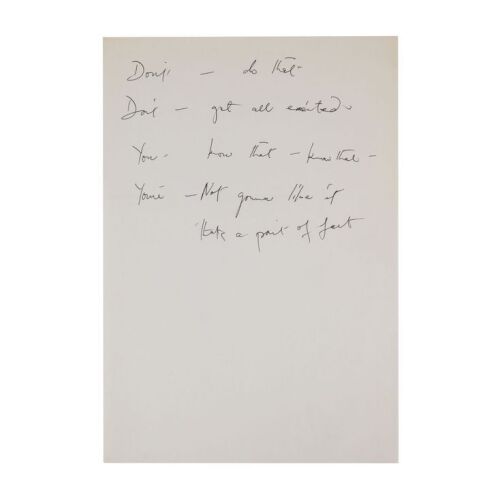 Don't — do that -
Don't — get all excited
You - know that — know that -
You're — Not gonna like it
that's a point of fact